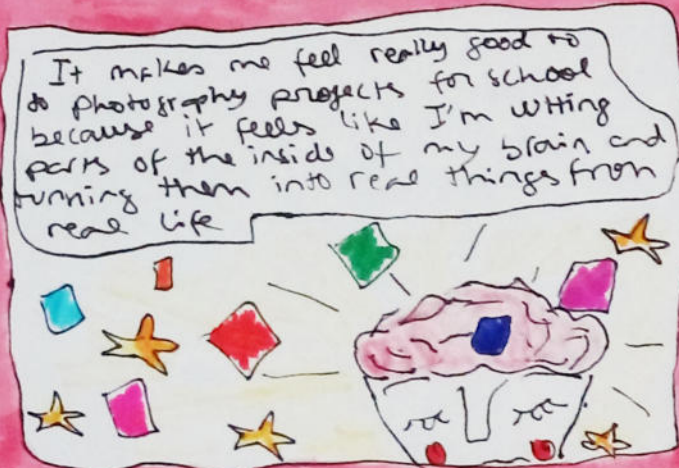 It makes me feel really good to
do photography projects for school
because it feels like I'm
parts of the inside of my brain and
turning them into real things from
real life